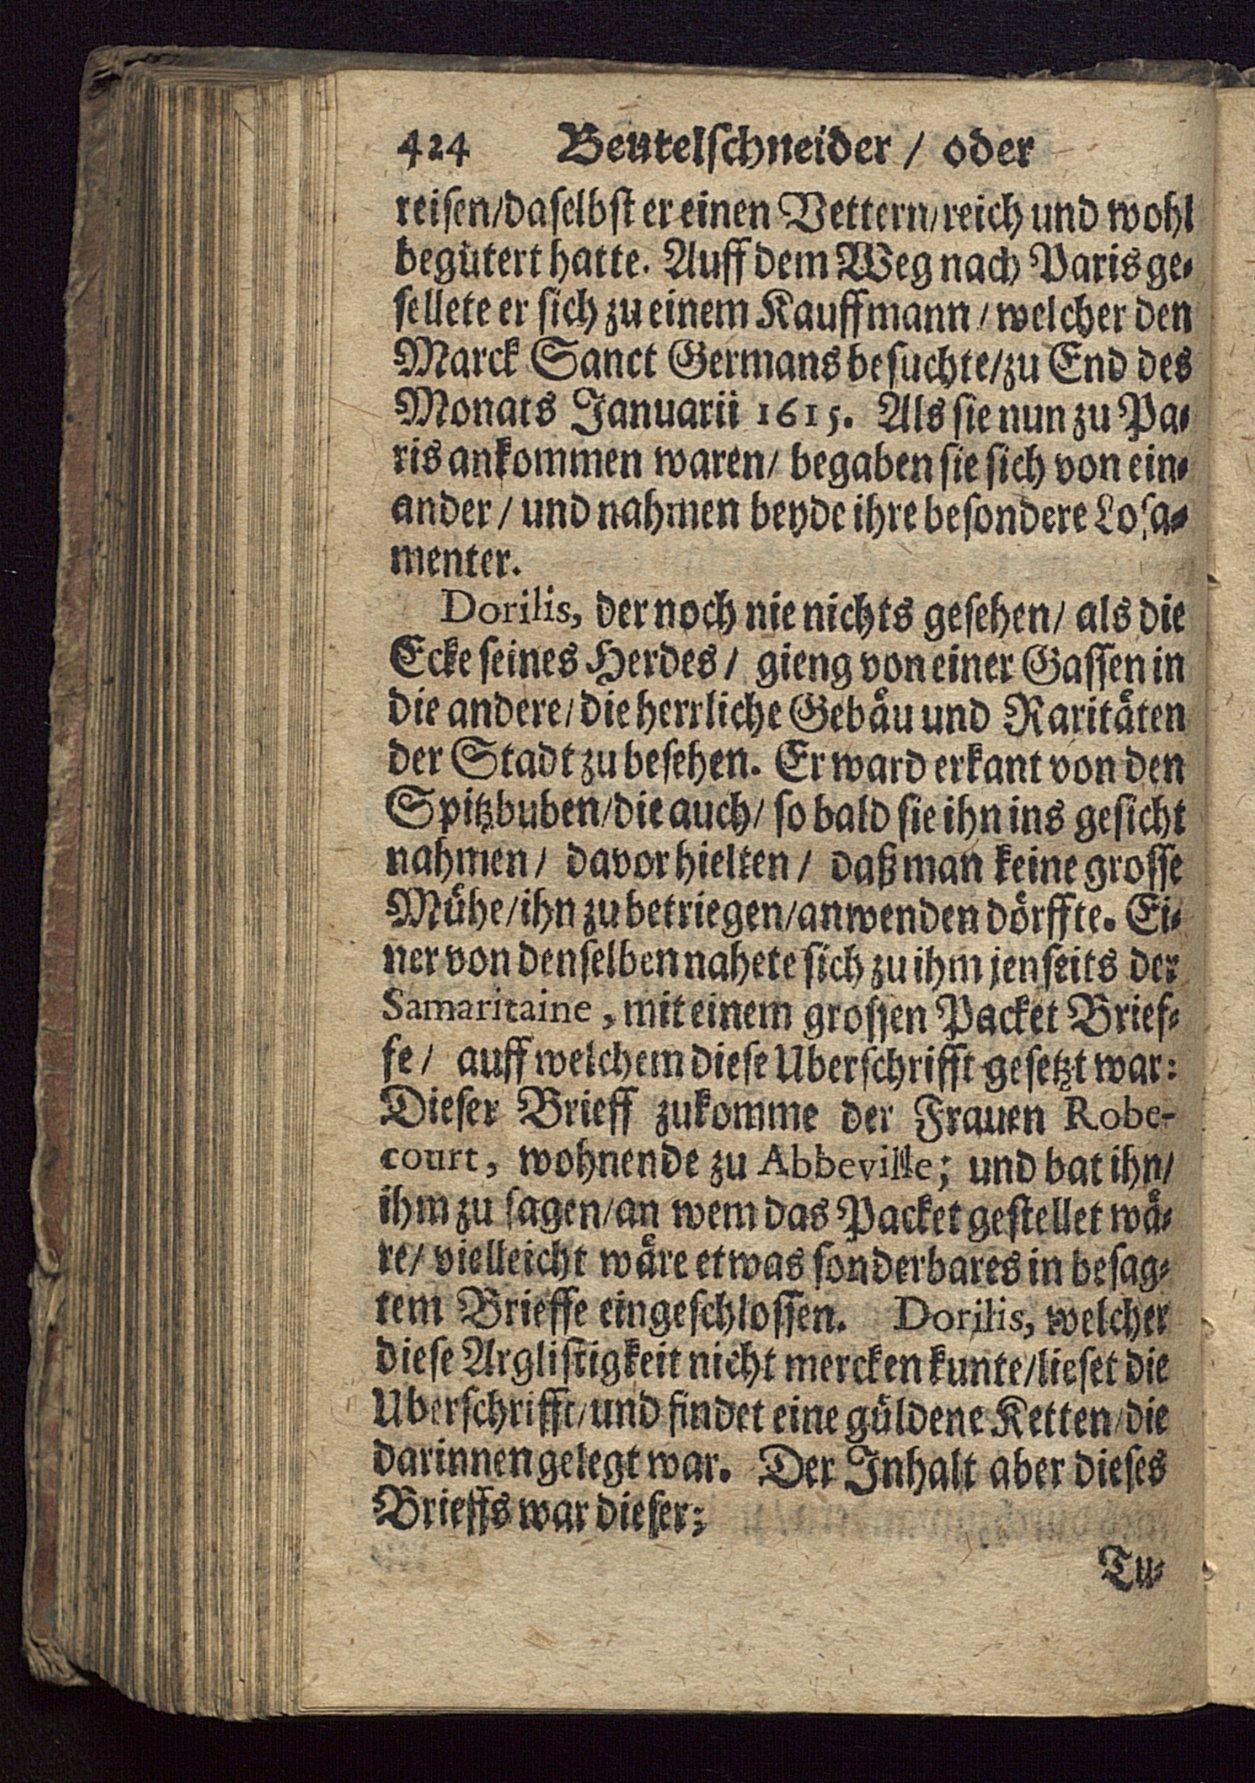 424 Beutelschneider / oder
reisen/daselbst er einen Vettern/reich und wohl
begütert hatte. Auff dem Weg nach Paris ge-
sellete er sich zu einem Kauffmann / welcher den
Marck Sanct Germans besuchte/zu End des
Monats Januarii 1615. Als sie nun zu Pa-
ris ankommen waren/ begaben sie sich von ein-
ander / und nahmen beyde ihre besondere Losa-
menter.
Dorilis, der noch nie nichts gesehen/ als die
Ecke seines Herdes / gieng von einer Gassen in
die andere/die herrliche Gebäu und Raritäten
der Stadt zu besehen. Er ward erkant von den
Spitzbuben/die auch/ so bald sie ihn ins gesicht
nahmen / davor hielten / daß man keine grosse
Mühe/ihn zu betriegen/anwenden dörffte. Ei-
ner von denselben nahete sich zu ihm jenseits der
Samaritaine, mit einem grossen Packet Brief-
fe / auff welchem diese Uberschrifft gesetzt war:
Dieser Brieff zukomme der Frauen Robe-
court, wohnende zu Abbeville; und bat ihn/
ihm zu sagen/an wem das Packet gestellet wä-
re/ vielleicht wäre etwas sonderbares in besag-
tem Brieffe eingeschlossen. Dorilis, welcher
diese Arglistigkeit nicht mercken kunte/lieset die
Uberschrifft/und findet eine güldene Ketten/die
darinnen gelegt war. Der Inhalt aber dieses
Brieffs war dieser;
Tu-